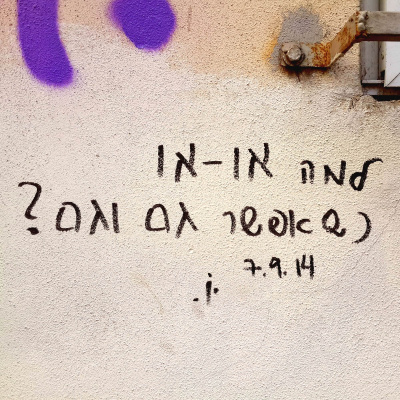 למה או-או
כשאפשר גם וגם?
7.9.14
י.